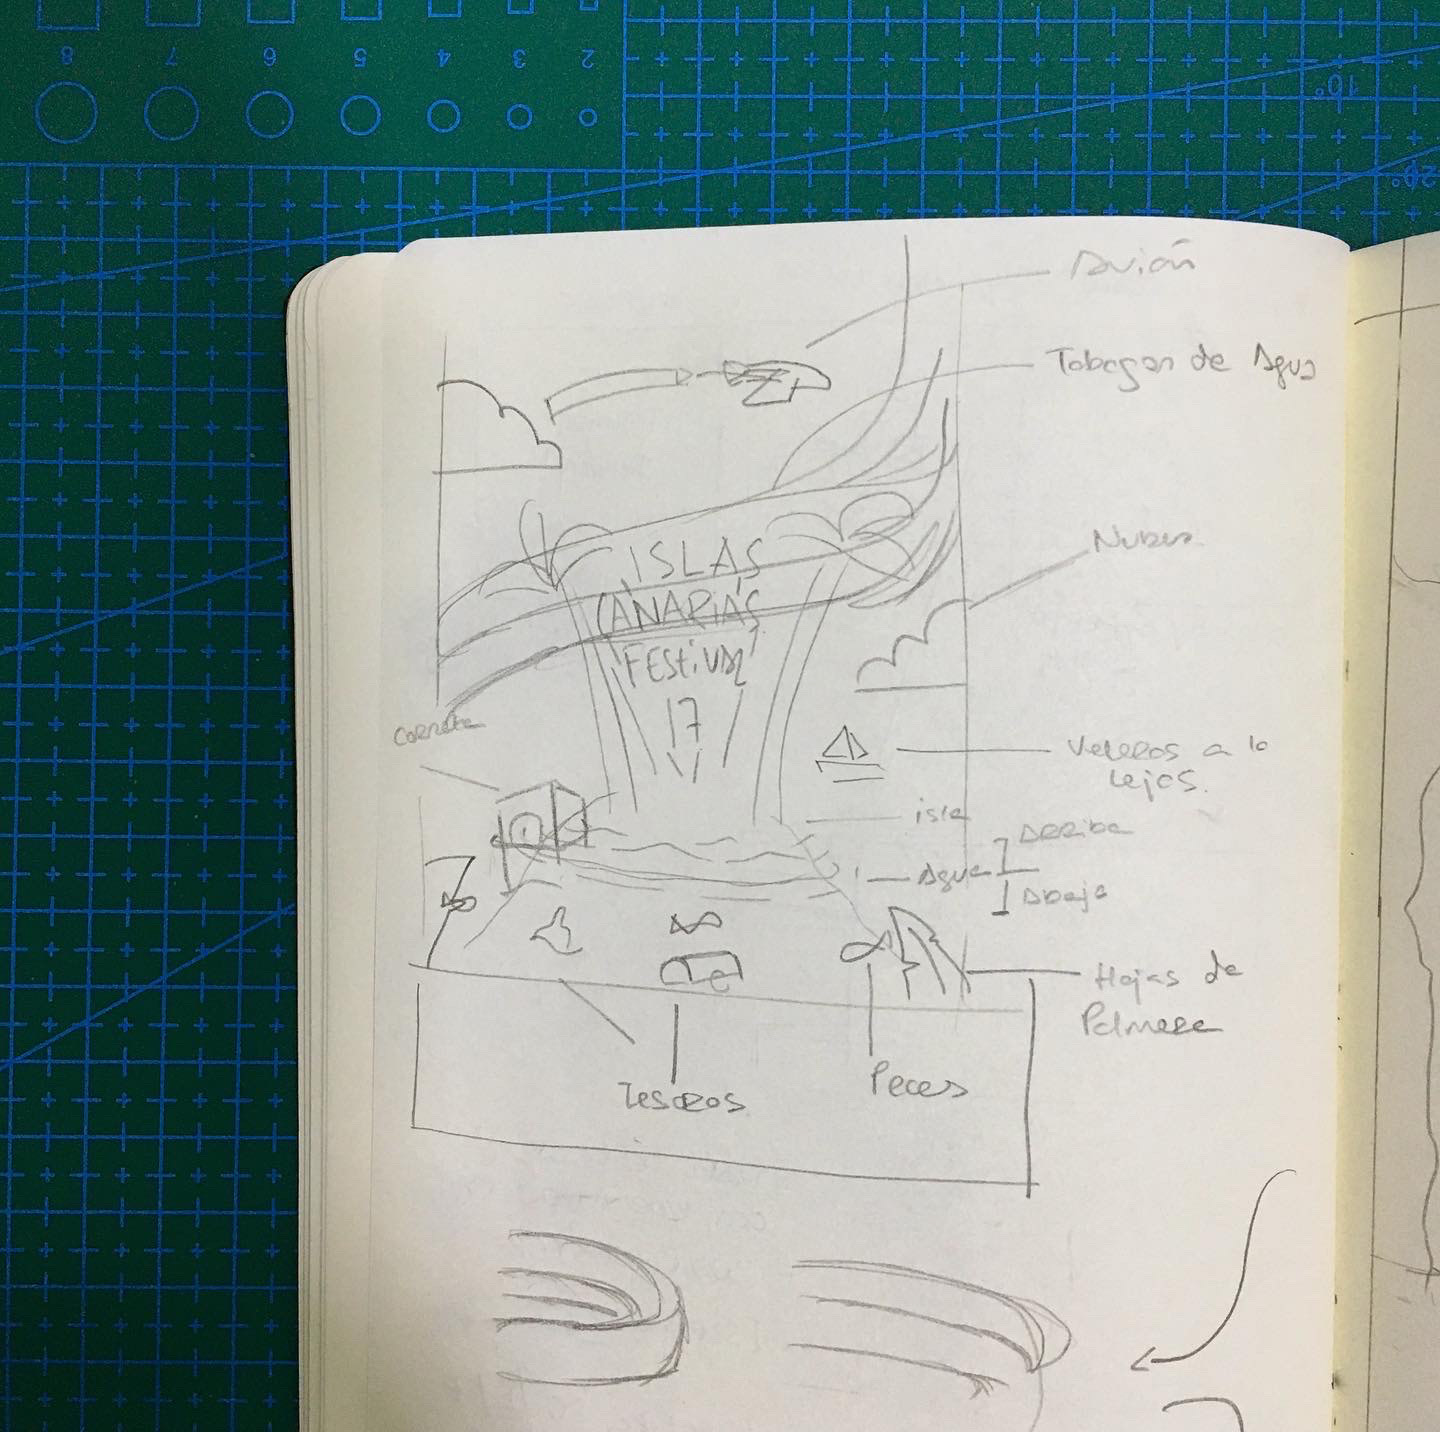 8 7 6 5 4 3 2
10°
20°
Avión
Tobogan de Agua
ISLAS
CANARIAS
FESTIVAL
17
Nubes
Veleros a lo
lejos.
isla
Agua
Arriba
Abajo
Hojas de
Palmera
Tesoros
Peces